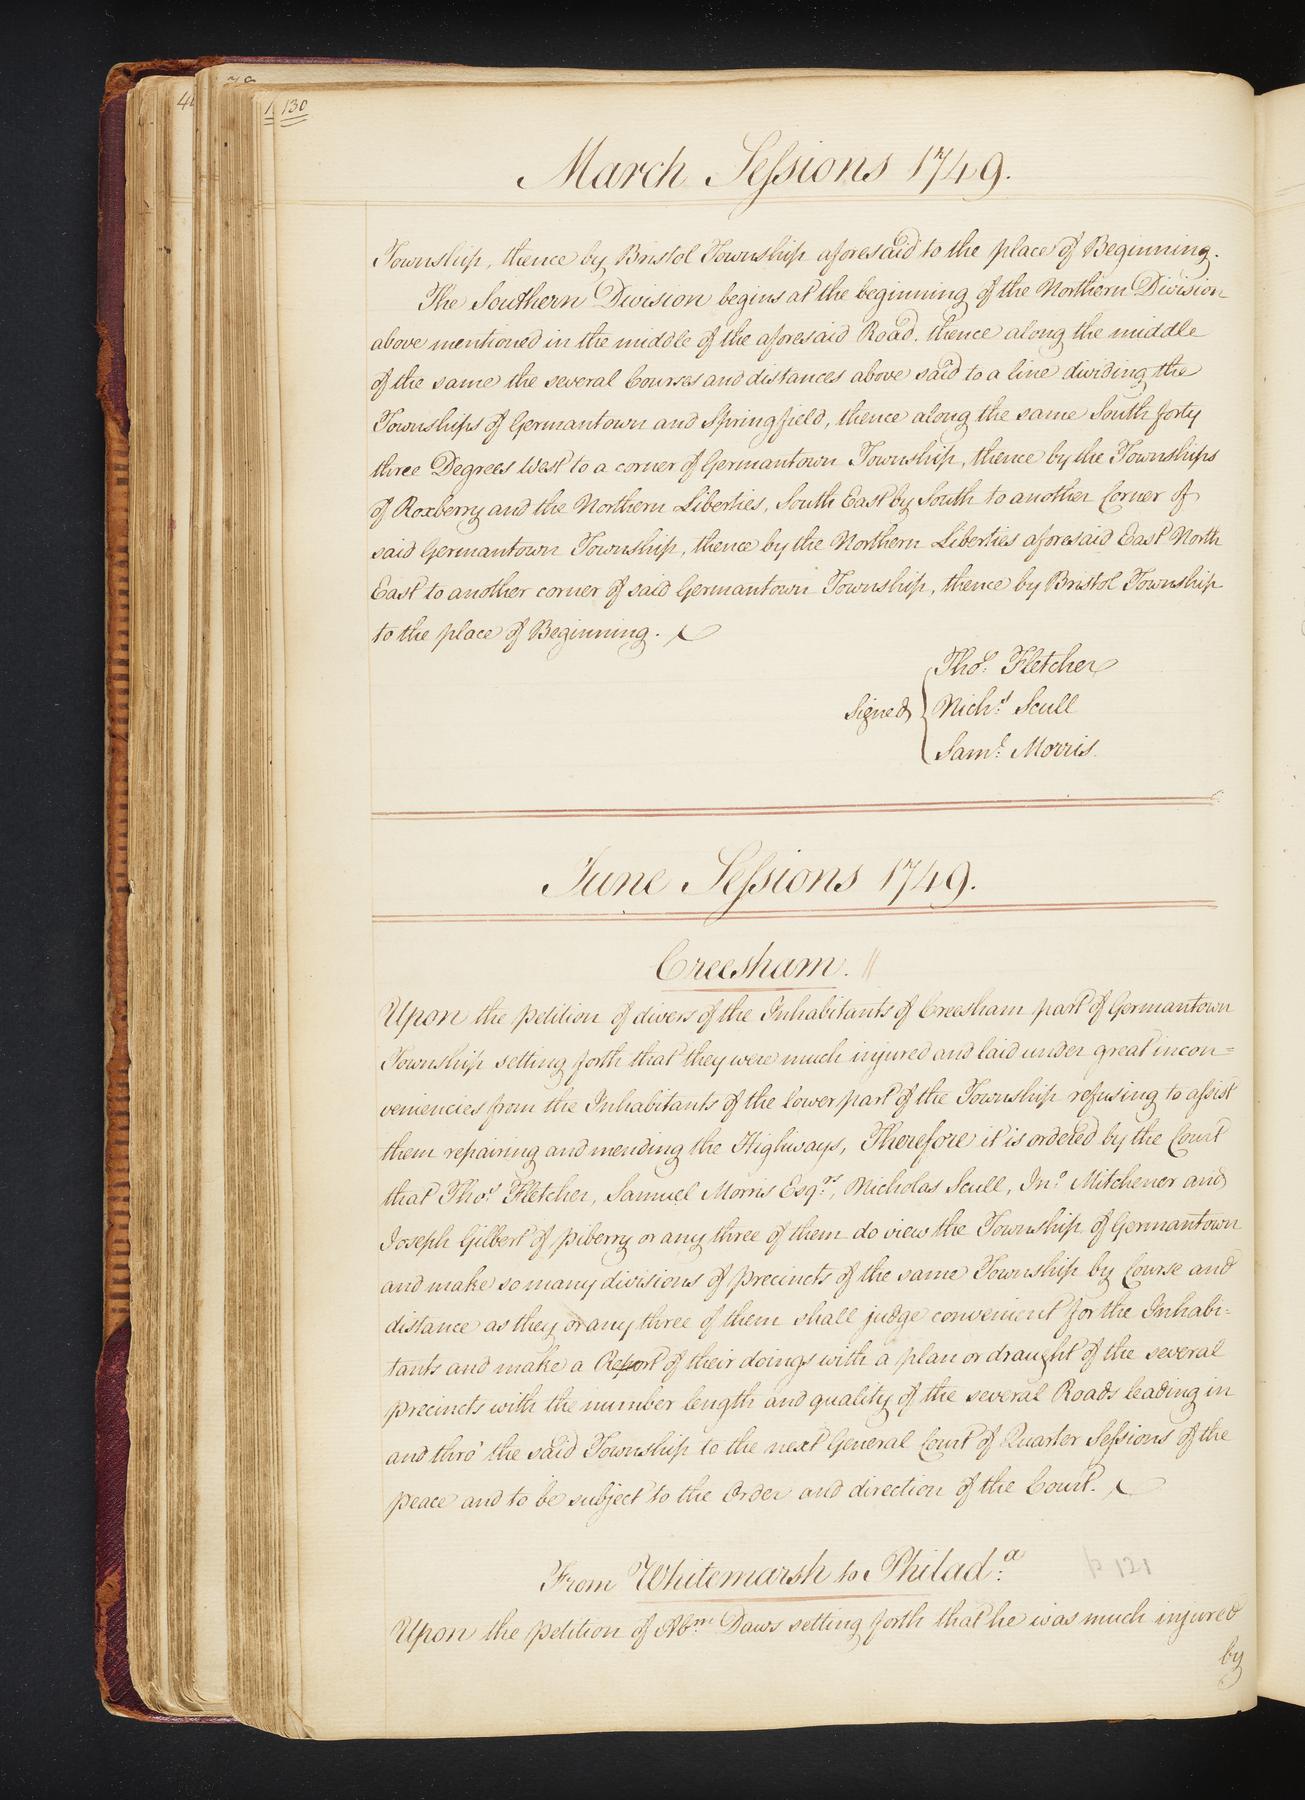 130
March Sessions 1749.
Township, thence by Bristol Township aforesaid to the place of Beginning.
The Southern Division begins at the beginning of the Northern Division
above mentioned in the middle of the aforesaid Road, thence along the middle
of the same the several Courses and distances above said to a line dividing the
Townships of Germantown and Springfield, thence along the same South forty
three Degrees West to a corner of Germantown Township, thence by the Townships
of Roxberry and the Northern Liberties, South East by South to another Corner of
said Germantown Township, thence by the Northern Liberties aforesaid East North
East to another corner of said Germantown Township, thence by Bristol Township
to the place of Beginning.
Thos. Fletcher
Signed Nichs. Scull
Saml. Morris.
June Sessions 1749.
Creesham.
Upon the petition of divers of the Inhabitants of Creesham part of Germantown
Township setting forth that they were much injured and laid under great incon=
veniencies from the Inhabitants of the lower part of the Township refusing to assist
them repairing and mending the Highways, Therefore it is ordered by the Court
that Thos. Fletcher, Samuel Morris Esqrs., Nicholas Scull, Jno. Mitchener and
Joseph Gilbert of Biberry or any three of them do view the Township of Germantown
and make so many divisions of precincts of the same Township by Course and
distance as they or any three of them shall judge convenient for the Inhabi-
tants and make a Report of their doings with a plan or draught of the several
precincts with the number length and quality of the several Roads leading in
and thro' the said Township to the next General Court of Quarter Sessions of the
peace and to be subject to the Order and direction of the Court.
From Whitemarsh to Philada.
p 121
Upon the petition of Abm. Daws setting forth that he was much injured
by